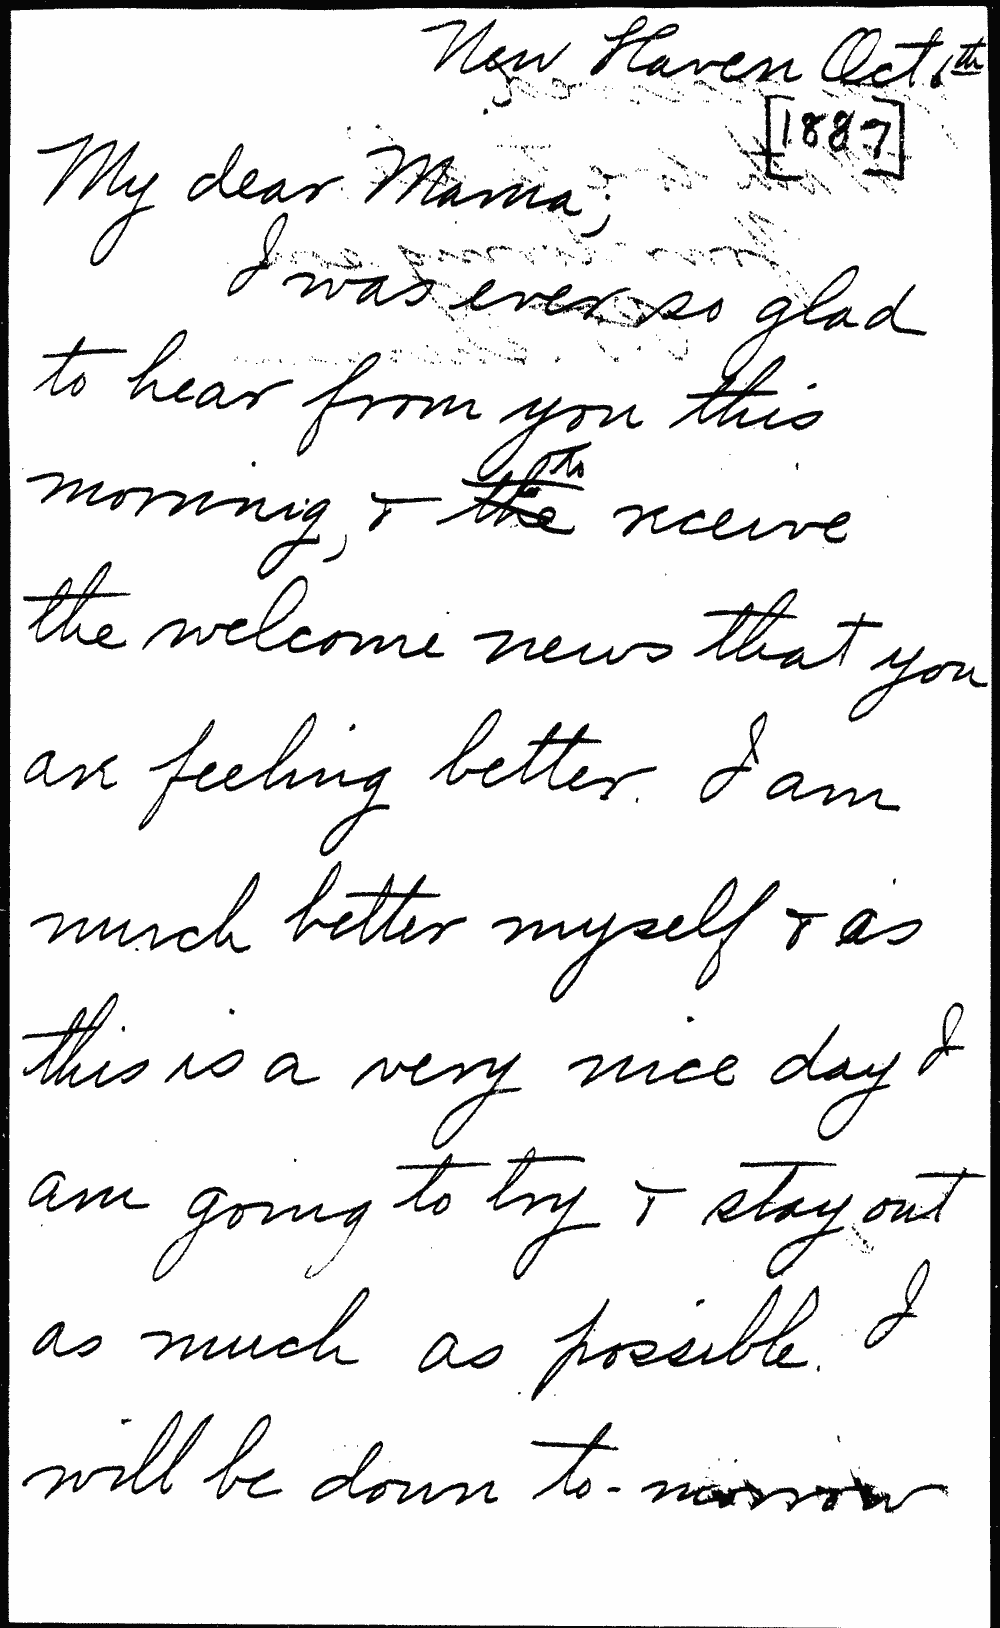 New Haven Oct. 6th
[1887]
My dear Mama;
I was ever so glad
to hear from you this
morning, & the to receive
the welcome news that you
are feeling better. I am
much better myself & as
this is a very nice day I
am going to try & stay out
as much as possible. I
will be down to-morrow